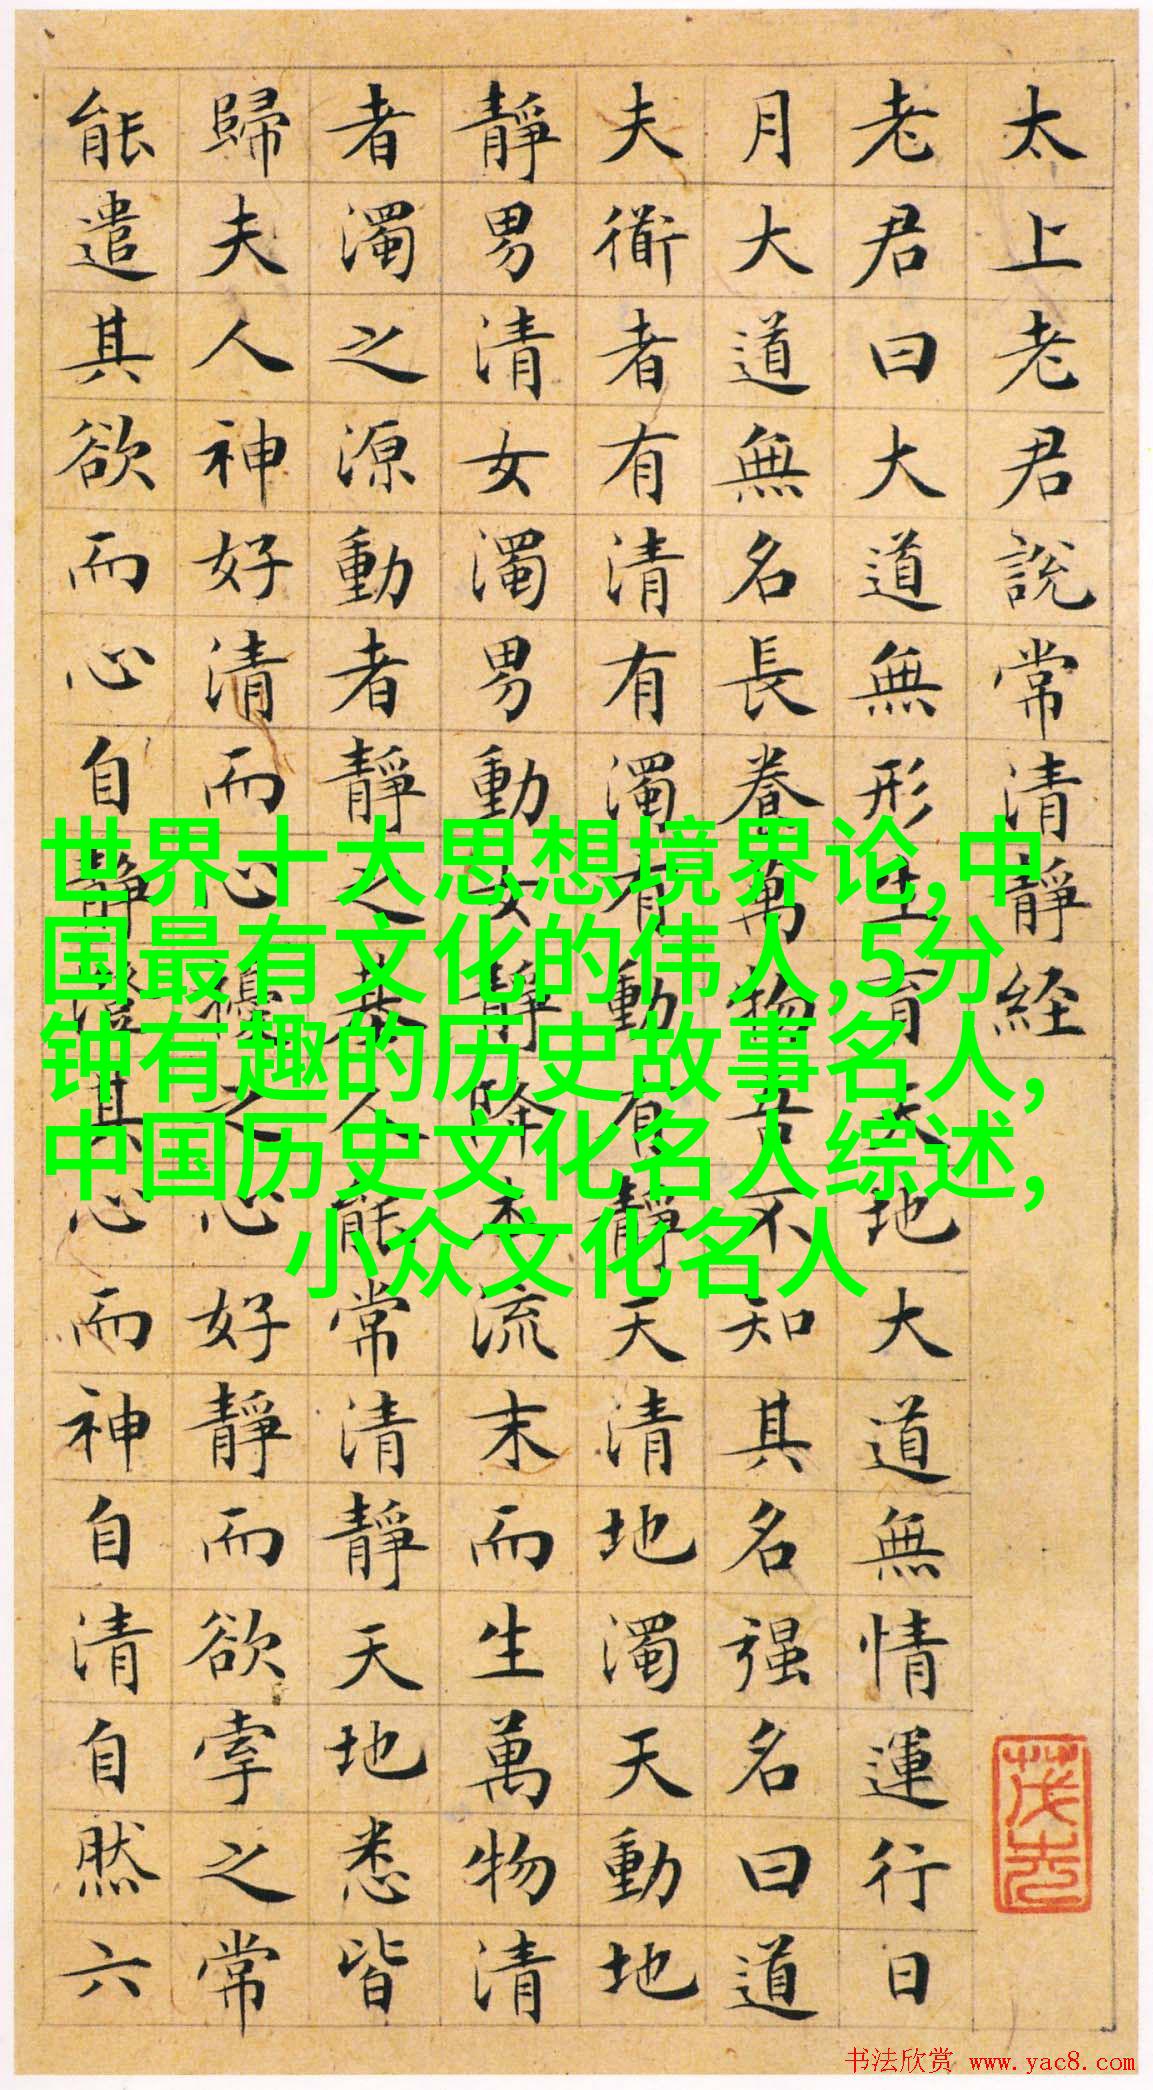 太上老君說常清靜経
老君曰大道無形生育天地大道無情運行日
月大道無名長養萬物吾不知其名强名曰道
夫衜者有清有濁有動有靜天清地濁天動地
靜男清女濁男動女靜降本流末而生萬物清
者濁之源動者靜之基人能常清靜天地悉皆
歸夫人神好清而心擾之心好靜而欲牽之常
能遣其欲而心自靜澄其心而神自清自然六
世界十大思想境界论,中
国最有文化的伟人,5分
钟有趣的历史故事名人,
中国历史文化名人综述,
小众文化名人
书法欣赏 www.yac8.com